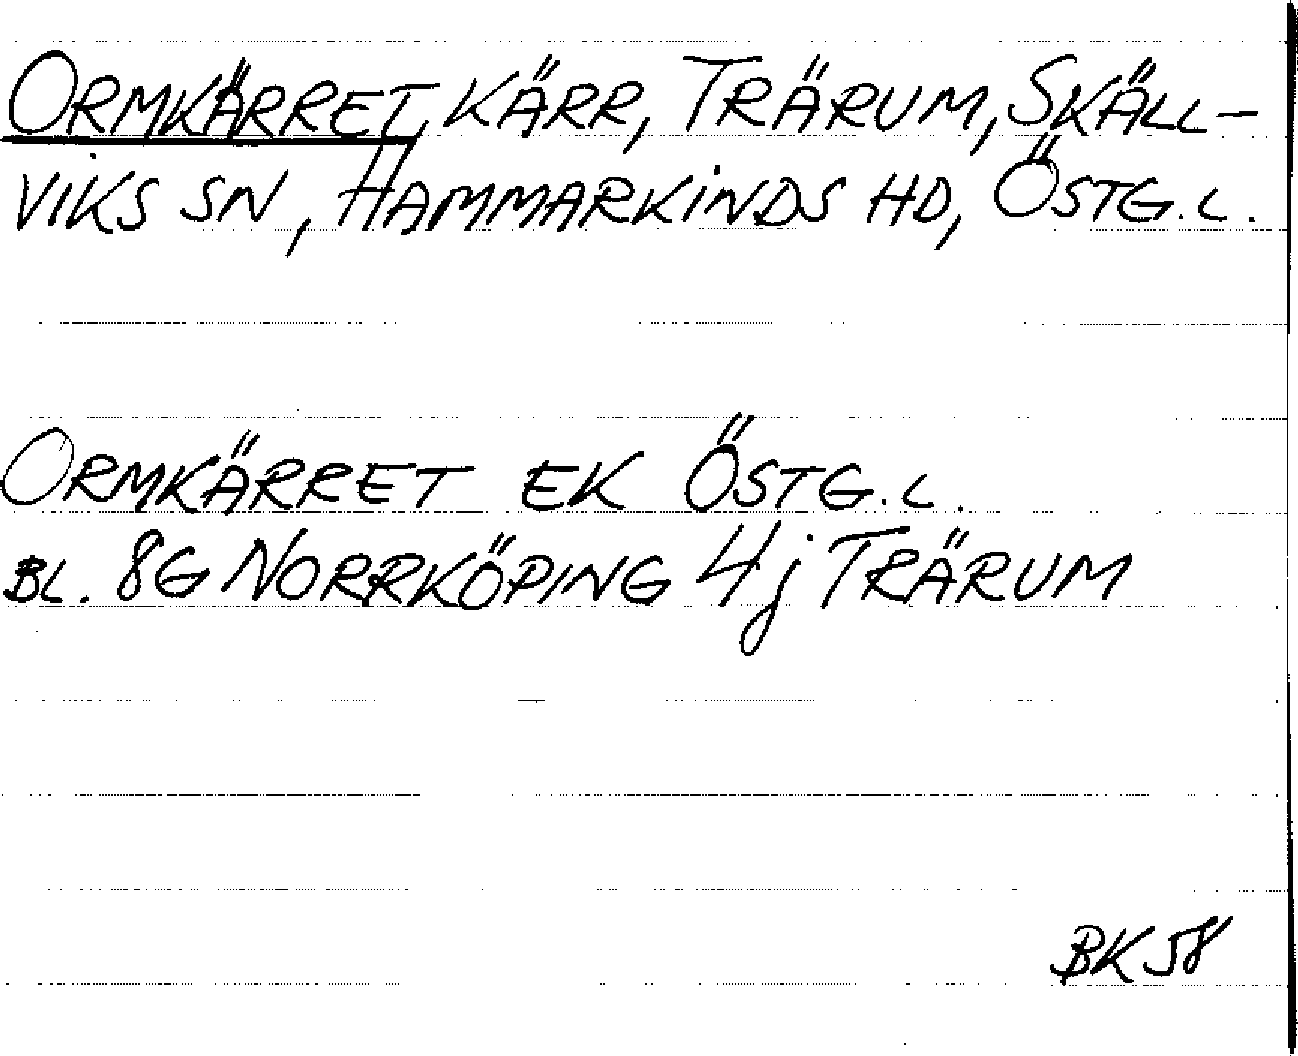 ORMKÄRRET, KÄRR, TRÄRUM, SKÄLL-
VIKS SN, HAMMARKINDS HD, ÖSTG.L.
ORMKÄRRET EK ÖSTG.L.
BL. 8G NORRKÖPING 4j TRÄRUM
BK 58